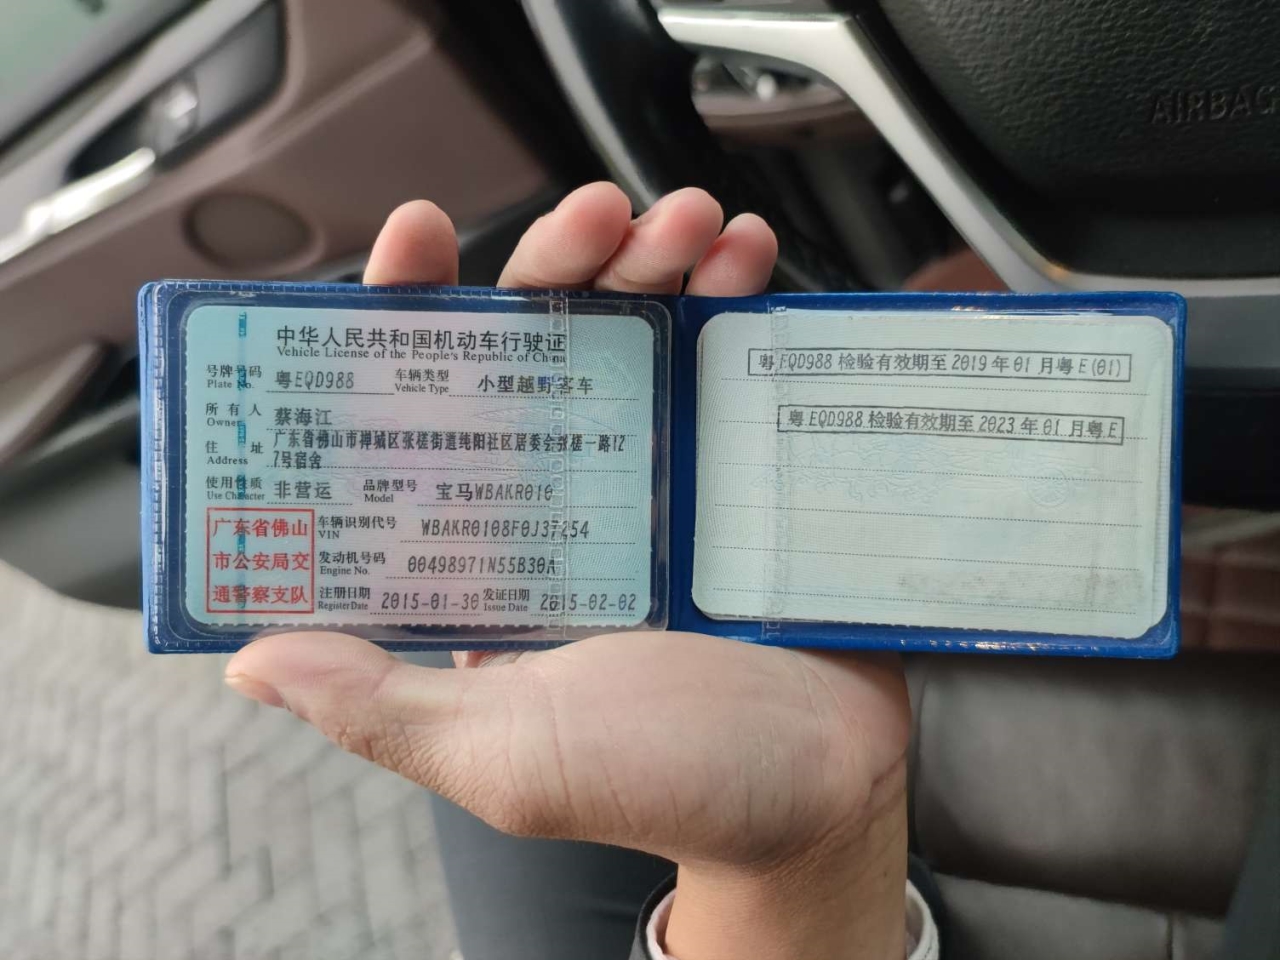 AIRBAG
中华人民共和国机动车行驶证
Vehicle License of the People's Republic of China
号牌号码 粤EQD988 车辆类型 小型越野客车
Plate No. Vehicle Type
所有人 蔡海江
Owner
住址 广东省佛山市禅城区张槎街道纯阳社区居委会张槎一路12
Address 7号宿舍
使用性质 非营运 品牌型号 宝马WBAKR010
Use Character Model
广东省佛山
市公安局交
通警察支队
车辆识别代号 WBAKR0108F0J37254
VIN
发动机号码 00498971N55B30A
Engine No.
注册日期 2015-01-30 发证日期 2015-02-02
Register Date Issue Date
粤EQD988 检验有效期至 2019 年 01 月粤 E(01)
粤EQD988 检验有效期至 2023 年 01 月粤 E